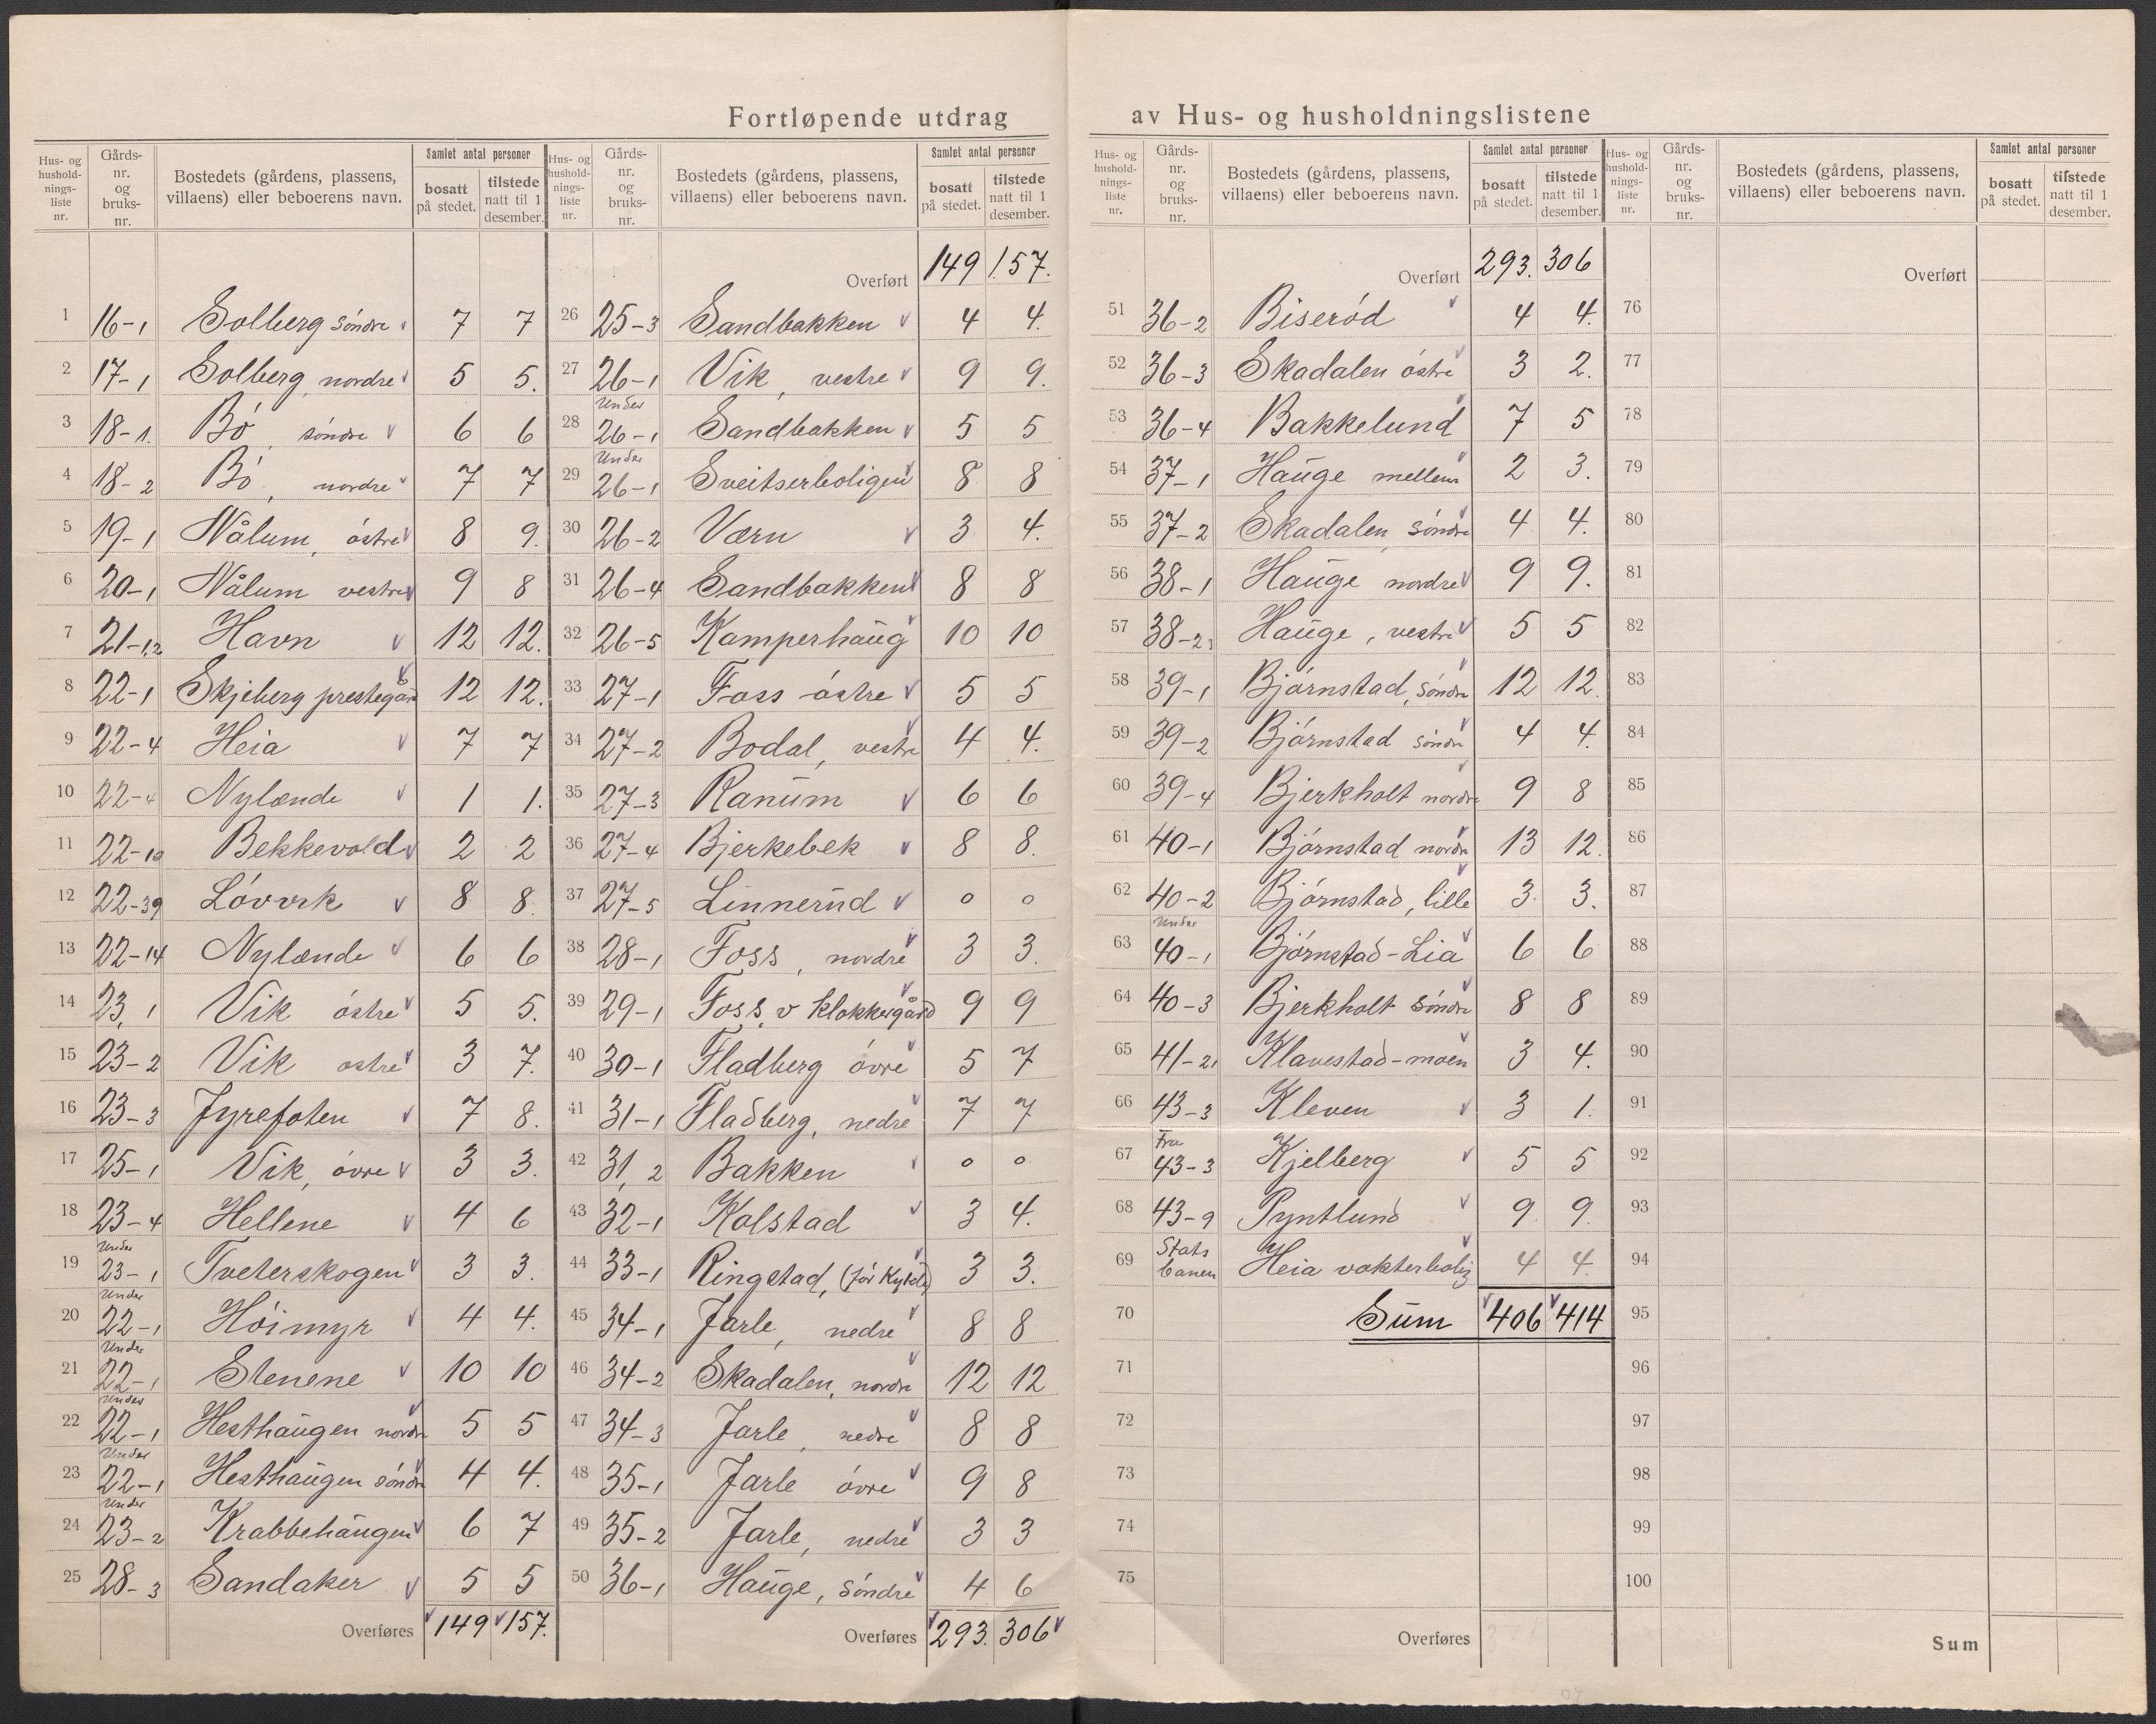 Fortløpende utdrag av Hus- og husholdningslistene
Hus- og hushold-nings-liste nr. | Gårds-nr. og bruks-nr. | Bostedets (gårdens, plassens, villaens) eller beboerens navn. | Samlet antal personer | bosatt på stedet. | tilstede natt til 1 desember.
1 16-1 Solberg søndre 7 7
2 17-1 Solberg, nordre 5 5.
3 18-1. Bö, söndre 6 6
4 18-2 Bö, nordre 7 7
5 19-1 Nålum, östre 8 9.
6 20-1 Nålum vestre 9 8
7 21-1,2 Havn 12 12.
8 22-1 Skjeberg prestegård 12 12.
9 22-4 Heia 7 7
10 22-4 Nylænde 1 1.
11 22-10 Bekkevold 2 2
12 22-39 Lövvik 8 8.
13 22-14 Nylænde 6 6
14 23,1 Vik östre 5 5.
15 23-2 Vik ostre 3 7.
16 23-3 Fyrefoten 7 8.
17 25-1 Vik, övre 3 3.
18 23-4 Hellene 4 6
19 Under 23-1 Tveterskogen 3 3.
20 Under 22-1 Höimyr 4 4.
21 Under 22-1 Stenene 10 10
22 Under 22-1 Hesthaugen nordre 5 5
23 Under 22-1 Hesthaugen söndre 4 4.
24 Under 23-2 Krabbehaugen 6 7
25 28-3 Sandaker 5 5
Overføres 149 157.
Hus- og hushold-nings-liste nr. | Gårds-nr. og bruks-nr. | Bostedets (gårdens, plassens, villaens) eller beboerens navn. | Samlet antal personer | bosatt på stedet. | tilstede natt til 1 desember.
Overført 149 157.
26 25-3 Sandbakken 4 4.
27 26-1 Vik, vestre 9 9.
28 Under 26-1 Sandbakken 5 5
29 Under 26-1 Sveitserboligen 8 8
30 26-2 Værn 3 4.
31 26-4 Sandbakken 8 8
32 26-5 Kamperhaug 10 10
33 27-1 Foss östre 5 5
34 27-2 Bodal, vestre 4 4.
35 27-3 Ranum 6 6
36 27-4 Bjerkebek 8 8.
37 27-5 Linnerud 0 0
38 28-1 Foss, nordre 3 3.
39 29-1 Foss, v Klokkergård 9 9
40 30-1 Fladberg övre 5 7
41 31-1 Fladberg, nedre 7 7
42 31,2 Bakken 0 0
43 32-1 Kolstad 3 4.
44 33-1 Ringstad, 3 3.
45 34-1 Jarle, nedre 8 8
46 34-2 Skadalen, nordre 12 12
47 34-3 Jarle, nedre 8 8
48 35-1 Jarle övre 9 8
49 35-2 Jarle, nedre 3 3
50 36-1 Hauge, söndre 4 6
Overføres 293. 306
Hus- og hushold-nings-liste nr. | Gårds-nr. og bruks-nr. | Bostedets (gårdens, plassens, villaens) eller beboerens navn. | Samlet antal personer | bosatt på stedet. | tilstede natt til 1 desember.
Overført 293. 306
51 36-2 Biseröd 4 4.
52 36-3 Skadalen östre 3 2.
53 36-4 Bakkelund 7 5
54 37-1 Hauge mellem 2 3.
55 37-2 Skadalen, söndre 4 4.
56 38-1 Hauge nordre 9 9.
57 38-2,3 Hauge, vestre 5 5
58 39-1 Björnstad, söndre 12 12.
59 39-2 Björnstad söndre 4 4.
60 39-4 Bjerkholt nordre 9 8
61 40-1 Björnstad nordre 13 12.
62 40-2 Björnstad, lille 3 3.
63 Under 40-1 Björnstad-Lia 6 6
64 40-3 Bjerkholt söndre 8 8
65 41-21 Klavestad-moen 3 4.
66 43-3 Kleven 3 1.
67 Fra 43-3 Kjelberg 5 5
68 43-9 Pyntlund 9 9.
69 Stats banen Heia vokterbolig 4 4.
70 Sum 406 414
71
72
73
74
75
Overføres
Hus- og hushold-nings-liste nr. | Gårds-nr. og bruks-nr. | Bostedets (gårdens, plassens, villaens) eller beboerens navn. | Samlet antal personer | bosatt på stedet. | tilstede natt til 1 desember.
Overført
76
77
78
79
80
81
82
83
84
85
86
87
88
89
90
91
92
93
94
95
96
97
98
99
100
Sum